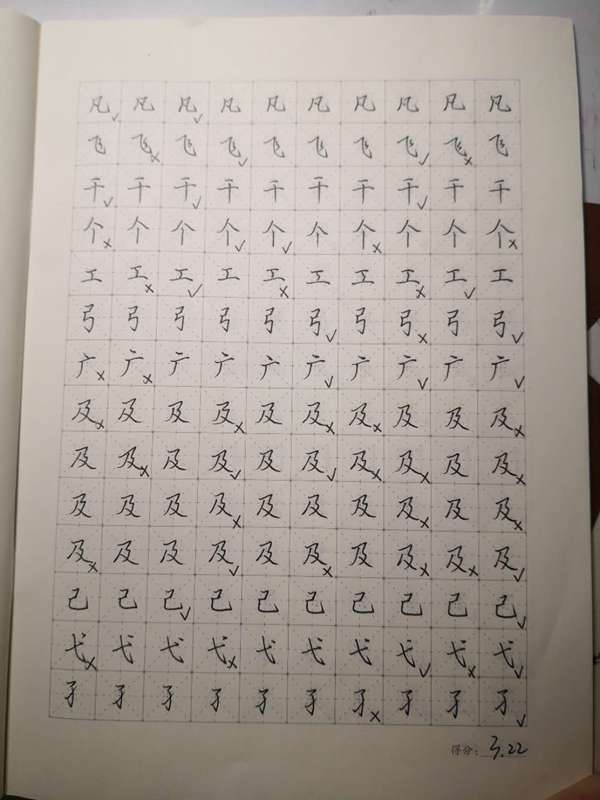 凡凡凡凡凡凡凡凡凡凡
飞飞飞飞飞飞飞飞飞飞
干干干干干干干干干干
个个个个个个个个个个
工工工工工工工工工工
弓弓弓弓弓弓弓弓弓弓
广广广广广广广广广广
及及及及及及及及及及
及及及及及及及及及及
及及及及及及及及及及
及及及及及及及及及及
己己己己己己己己己己
弋弋弋弋弋弋弋弋弋弋
孑孑孑孑孑孑孑孑孑孑
得分：3.22